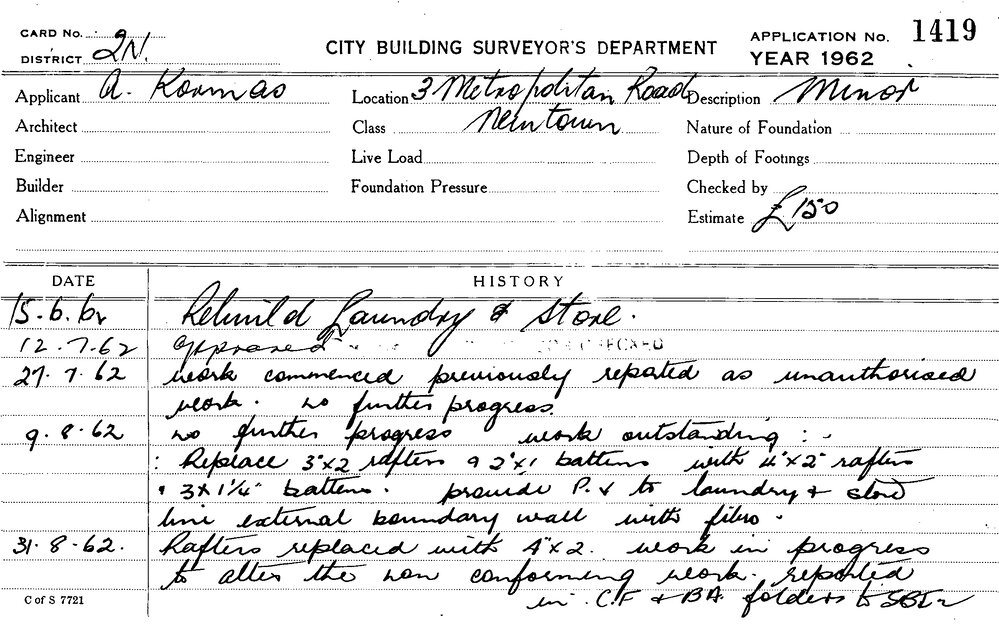 CARD No.
DISTRICT 2N.
CITY BUILDING SURVEYOR'S DEPARTMENT
APPLICATION No. 1419
YEAR 1962
Applicant A. Kormas Location 3 Metropolitan Road Description Minor
Architect Class Newtown Nature of Foundation
Engineer Live Load Depth of Footings
Builder Foundation Pressure Checked by
Alignment Estimate £150
DATE HISTORY
15.6.62 Rebuild Laundry & Store.
12.7.62 approved CHECKED
27.7.62 work commenced previously reported as unauthorised
work. no further progress.
9.8.62 no further progress work outstanding :-
: Replace 3"x2 rafters & 2"x1 battens with 4"x2" rafters
& 3x1¼" battens. provide P.V to laundry & store
line external boundary wall with fibro.
31.8.62. Rafters replaced with 4"x2. work in progress
to alter the non conforming work. reported
in C.F & BA folders to
C of S 7721